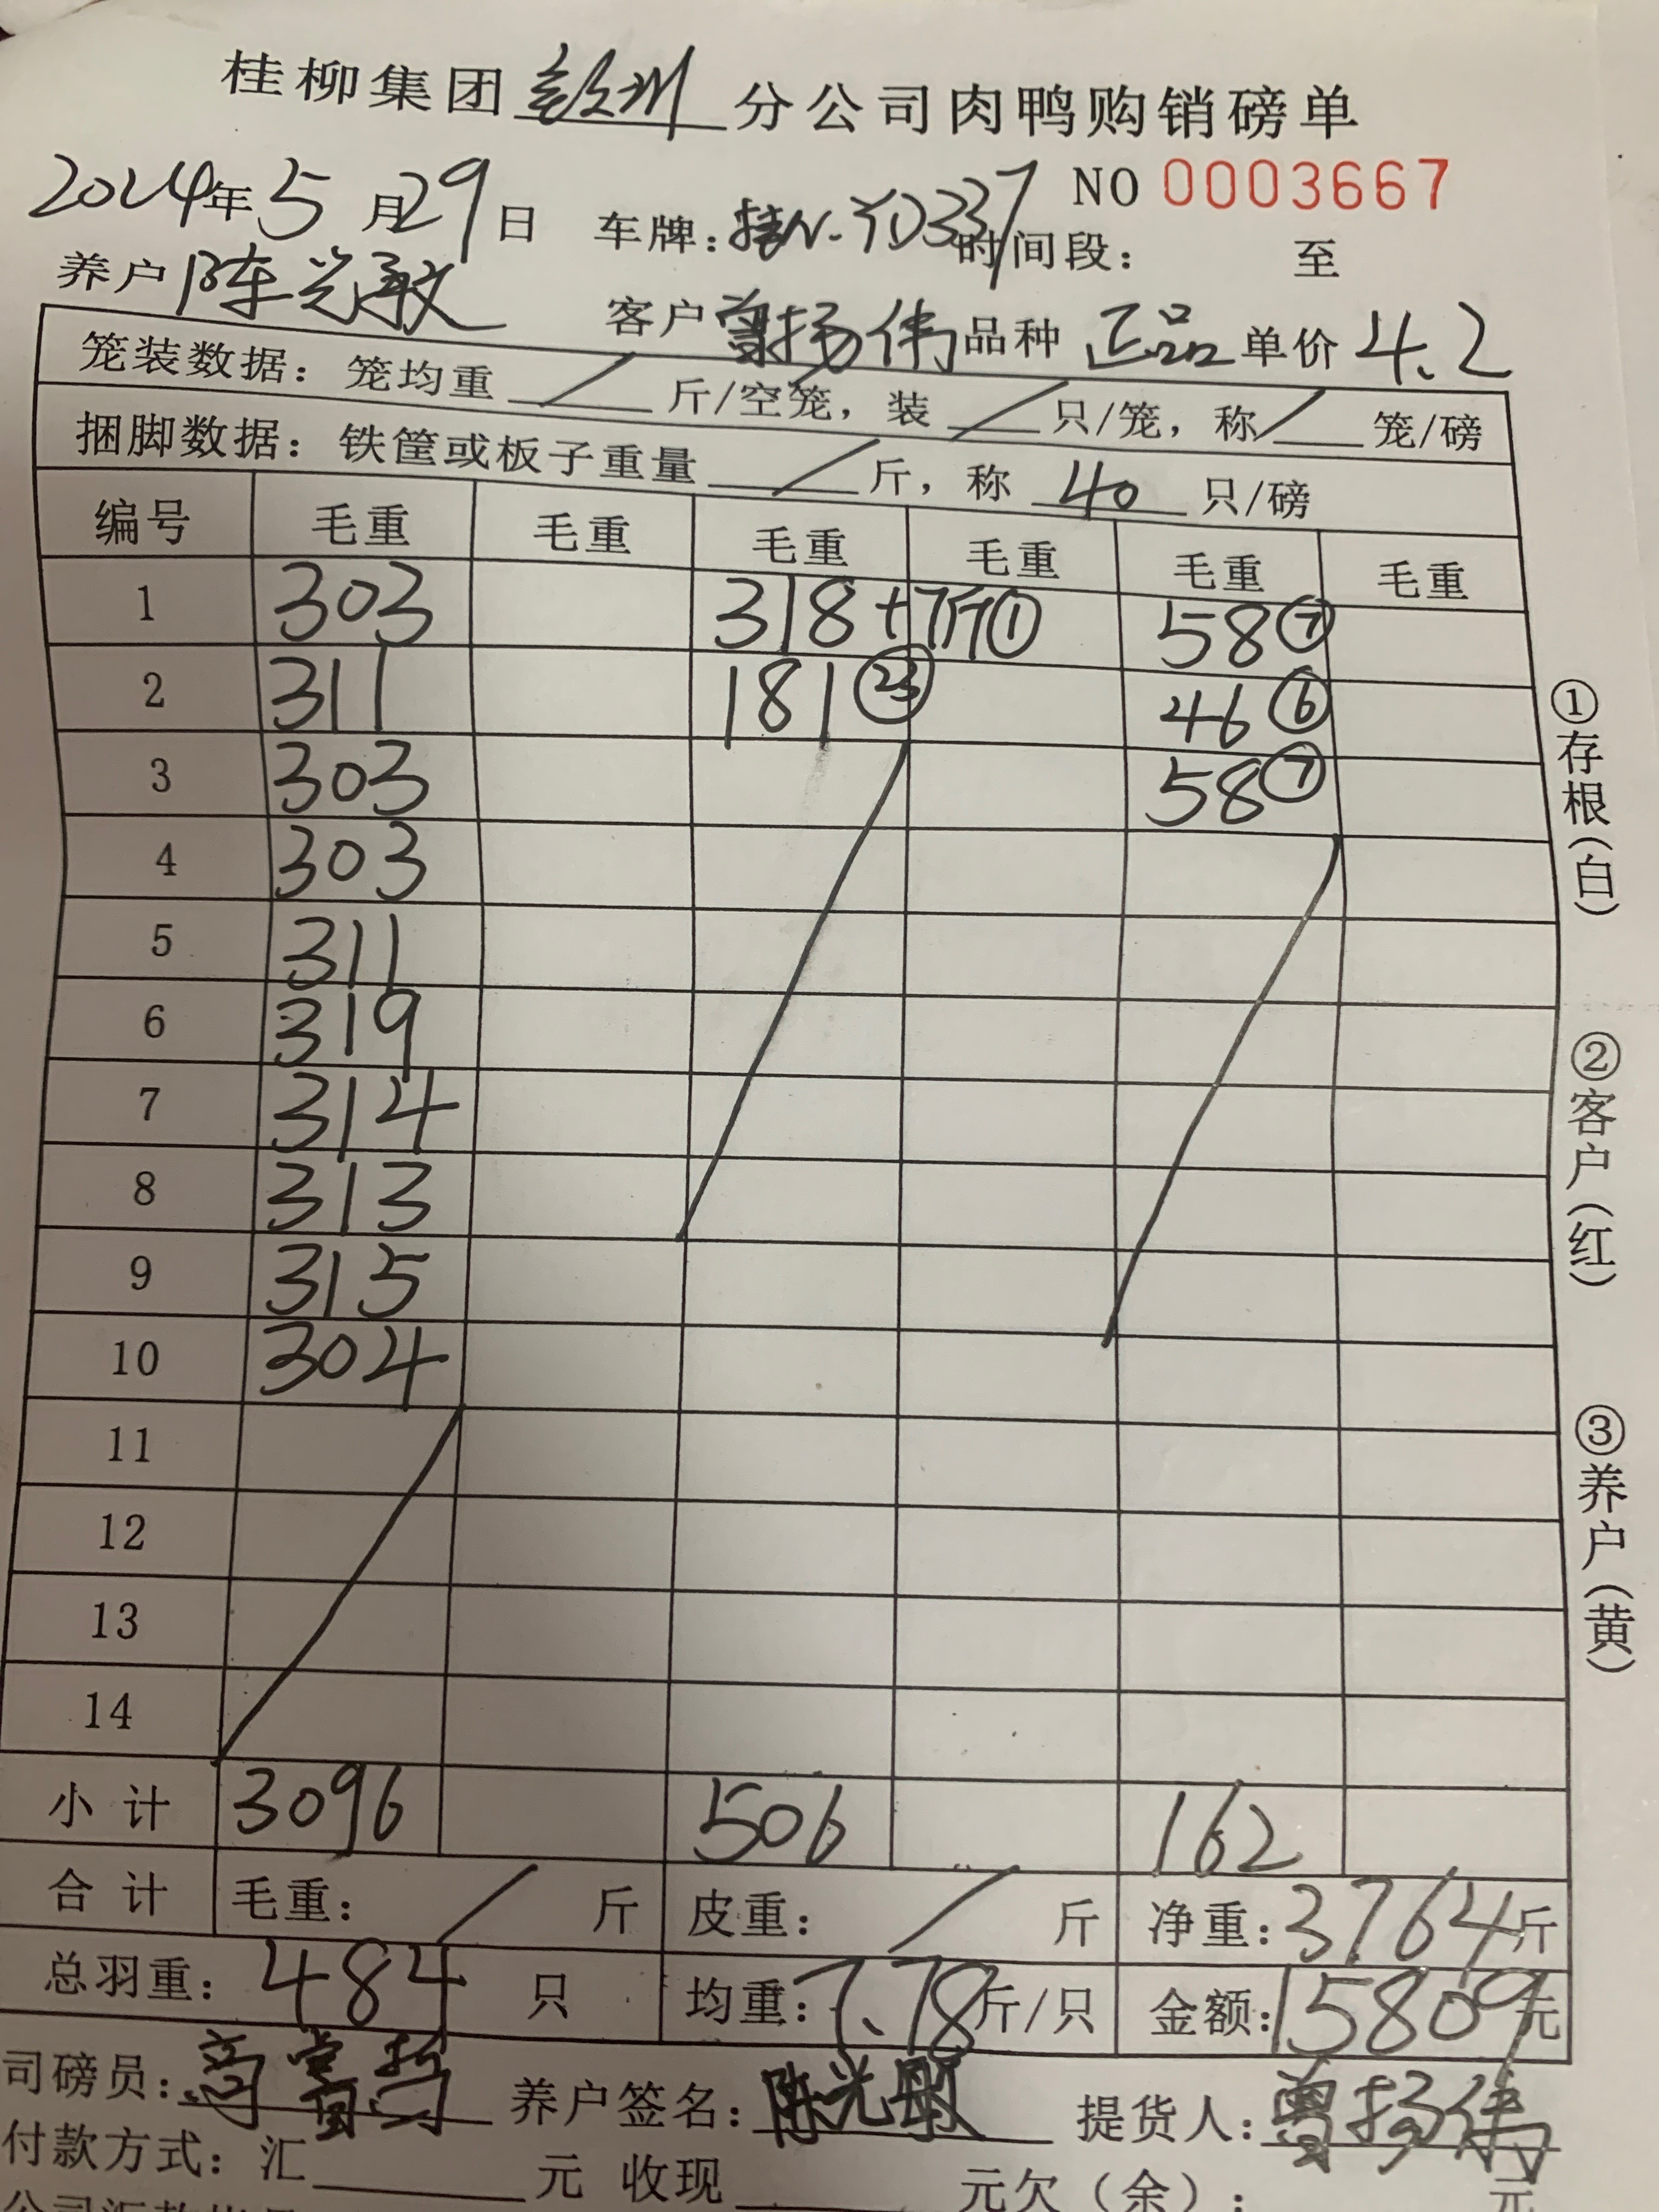 桂柳集团钦州分公司肉鸭购销磅单
NO 0003667
2024年5月29日 车牌:桂N·YD337 时间段: 至
养户陈光敏 客户曾扬伟 品种 正品 单价 4.2
笼装数据:笼均重 / 斤/空笼,装 / 只/笼,称 / 笼/磅
捆脚数据:铁筐或板子重量 / 斤,称 40 只/磅
编号 毛重 毛重 毛重 毛重 毛重 毛重
1 303 318+7斤① 58⑦
2 311 181㉓ 46⑥
3 303 58⑦
4 303
5 311
6 319
7 314
8 313
9 315
10 304
11
12
13
14
小计 3096 506 162
合计 毛重: / 斤 皮重: / 斤 净重:3764斤
总羽重:484 只 均重:7.78斤/只 金额:15809元
司磅员: 养户签名:陈光敏 提货人:曾扬伟
付款方式:汇 元 收现 元欠(余): 元
①存根(白)
②客户(红)
③养户(黄)